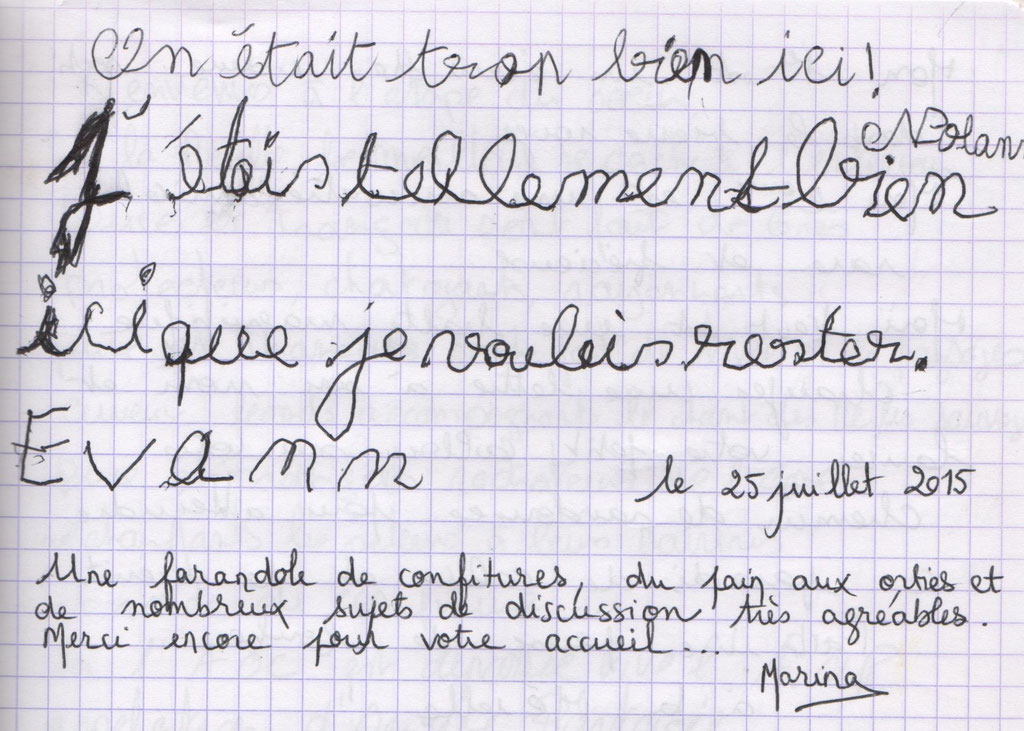 On était trop bien ici!
Nolan
J'étais tellement bien
ici que je voulais rester.
Evann
le 25 juillet 2015
Une farandole de confitures, du pain aux orties et
de nombreux sujets de discussion très agréables.
Merci encore pour votre accueil...
Marina